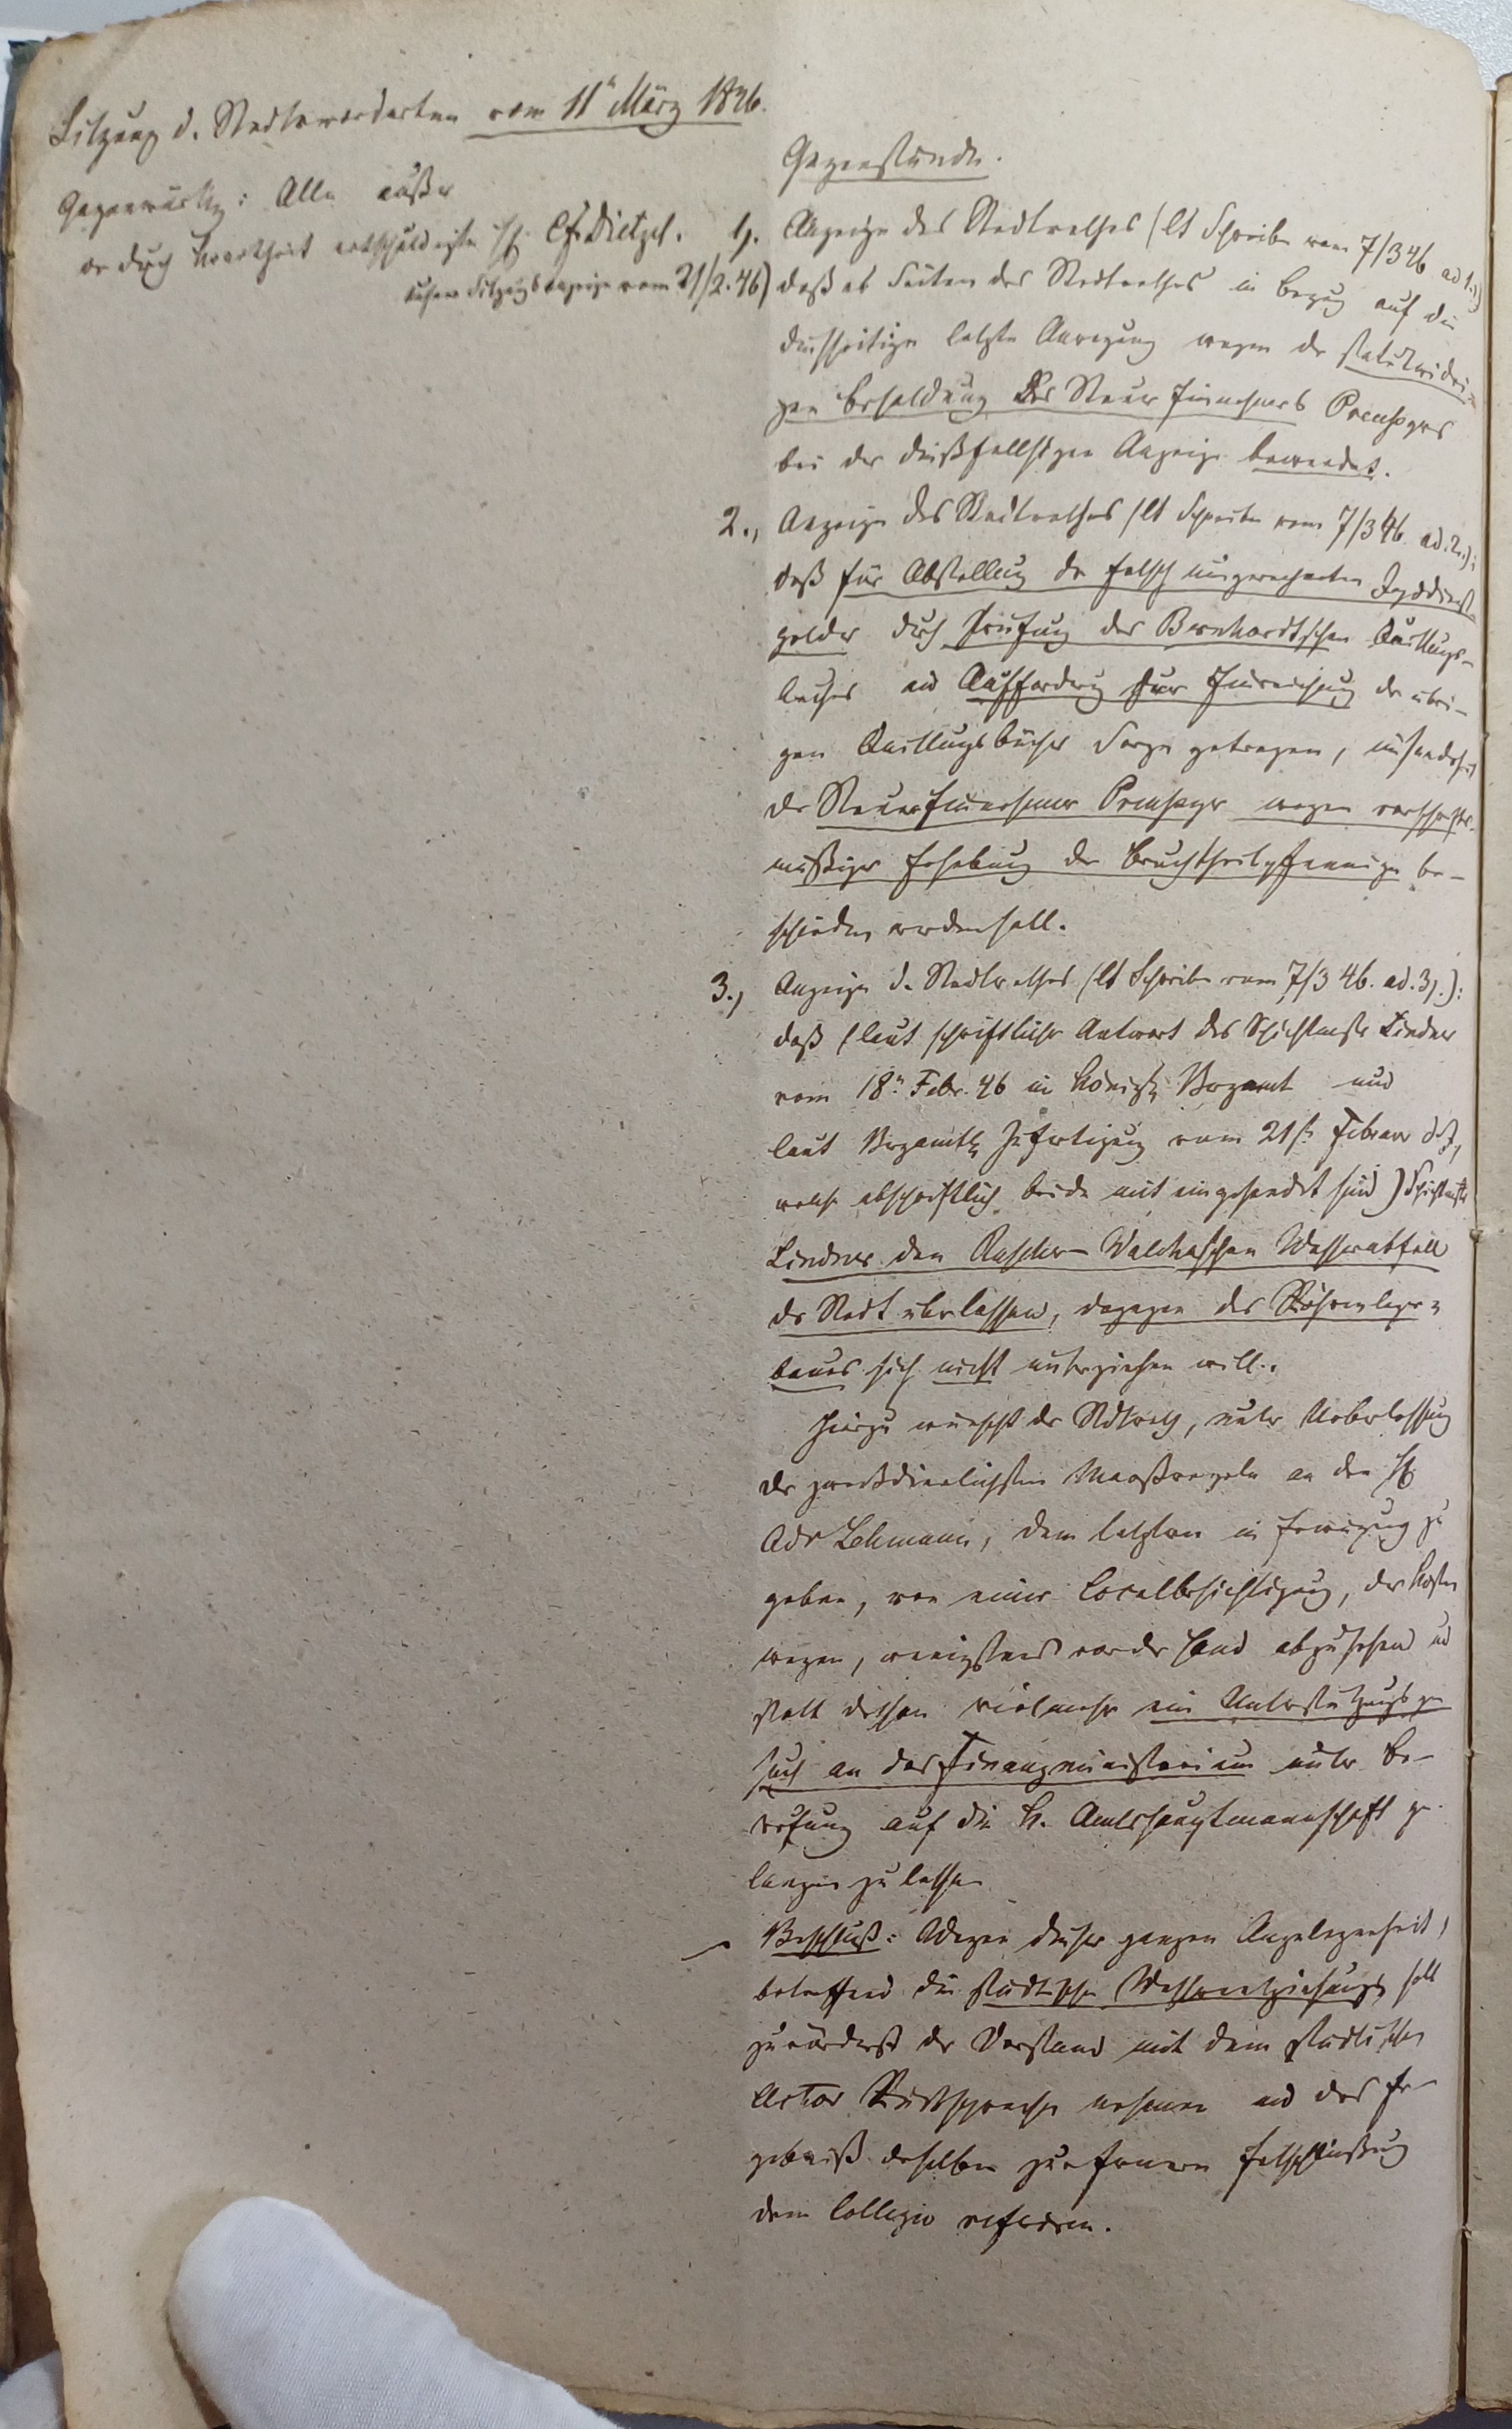 Sitzung d. Stadtverordneten vom 11n März 1846.
Gegenwärtig: Alle außer
der durch Krankheit entschuldigte H. Dietzel.
Sitzungsanzeige vom 21/2. 46)
Gegenstände.
1). Anzeige des Stadtrathes (lt Schreiben vom 7/3 46 ad 1.):
daß es Seiten des Stadtrathes in Bezug auf die
diesseitige letzte Anregung wegen der statutwidri-
gen Besoldung des Steuer Einnehmers
bei der dießfallsigen Anzeige bewendet.
2., Anzeige des Stadtrathes (lt Schreiben vom 7/3 46. ad. 2.):
daß für Abstellung der falsch eingerechneten
gelder durch Prüfung des Bernhardtschen Quittungs-
buches und Aufforderung zur Einreichung der übri-
gen Quittungsbücher Sorge getragen,
der Steuer Einnehmer wegen vorschrifts-
mäßiger Erhebung der Bruchtheilpfennige be-
schieden werden soll.
3., Anzeige d. Stadtrathes (lt Schreiben vom 7/3 46. ad. 3).):
daß (laut schriftlicher Antwort des Schichtmstr Lindner
vom 18n. Febr. 46 im Königl. Bergamt und
laut Bergamtl. Zufertigung vom 21st. Februar
welche abschriftlich beide mit eingesendet sind) Schichtmstr
Lindner den Wasserabfall
der Stadt überlassen, dagegen des Röhrenlager-
baues sich nicht unterziehen will.
Hierzu wünscht der Stdtrath, unter Ueberlassung
der zweckdienlichsten Maasregeln an den H
Adv Lehmann, dem letztern in Erwägung zu
geben, von einer Localbesichtigung, der Kosten
wegen, wenigstens vor der Hand abzusehen und
statt dessen vielmehr ein Unterstützungsge-
such an das Finanzministerium unter Be-
rufung auf die K. Amtshauptmannschaft ge-
langen zu lassen
Beschluß: Wegen dieser ganzen Angelegenheit,
betreffend die städtische soll
zuvörderst der Vorstand mit dem städtischen
Actor Rücksprache nehmen und das Er-
gebniß derselben zur fernern Entschließung
dem Collegio referiren.